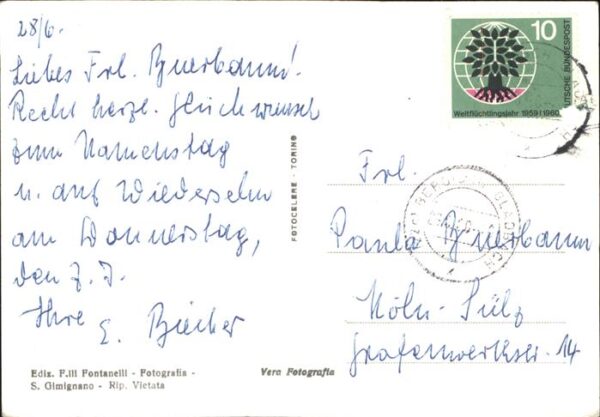 28/6.
Liebes Frl. Byerbaum!
Recht herzl. Glückwunsch
zum Namenstag
u. auf Wiedersehn
am Donnerstag,
den 7. J.
Ihre E. Bieber
Ediz. F.lli Fontanelli - Fotografia -
S. Gimignano - Rip. Vietata
Vera Fotografia
FOTOCELERE - TORINO
10
DEUTSCHE BUNDESPOST
Weltflüchtlingsjahr 1959/1960
BERGISCH GLADBACH
Frl.
Paula Byerbaum
Köln-Sülz
Grafenwerthstr. 14